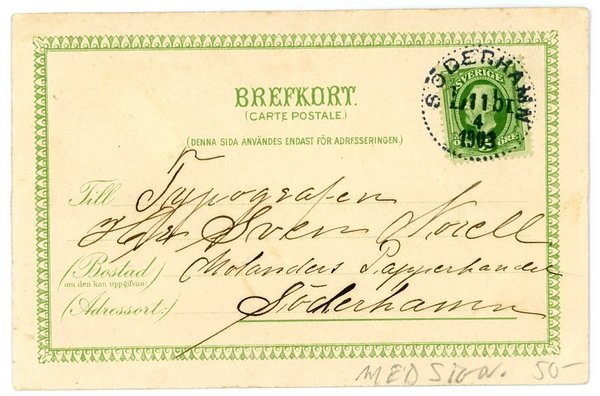 SÖDERHAMN
SVERIGE
L.11 br.
4
1903
ÖRE
BREFKORT.
(CARTE POSTALE.)
(DENNA SIDA ANVÄNDES ENDAST FÖR ADRESSERINGEN.)
Till Typografen
Herr Sven Norell
(Bostad) Molanders Pappershandel
om den kan uppgifvas:
(Adressort:) Söderhamn
MED SIGN. 50-